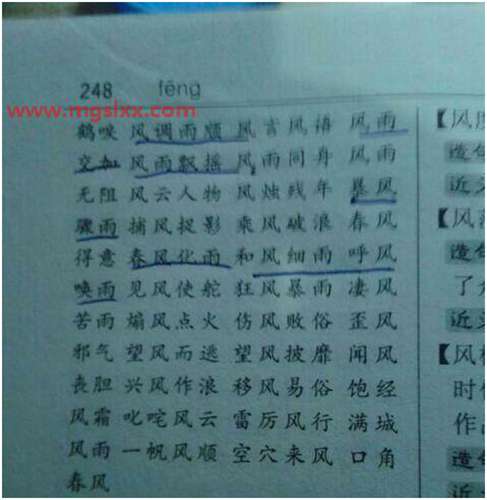 248 fēng
www.mgslxx.com
鹤唳 风调雨顺 风言风语 风雨
交加 风雨飘摇 风雨同舟 风雨
无阻 风云人物 风烛残年 暴风
骤雨 捕风捉影 乘风破浪 春风
得意 春风化雨 和风细雨 呼风
唤雨 见风使舵 狂风暴雨 凄风
苦雨 煽风点火 伤风败俗 歪风
邪气 望风而逃 望风披靡 闻风
丧胆 兴风作浪 移风易俗 饱经
风霜 叱咤风云 雷厉风行 满城
风雨 一帆风顺 空穴来风 口角
春风
【风
造句
近义
【风
造句
了
近义
【风
时
作
造句
近